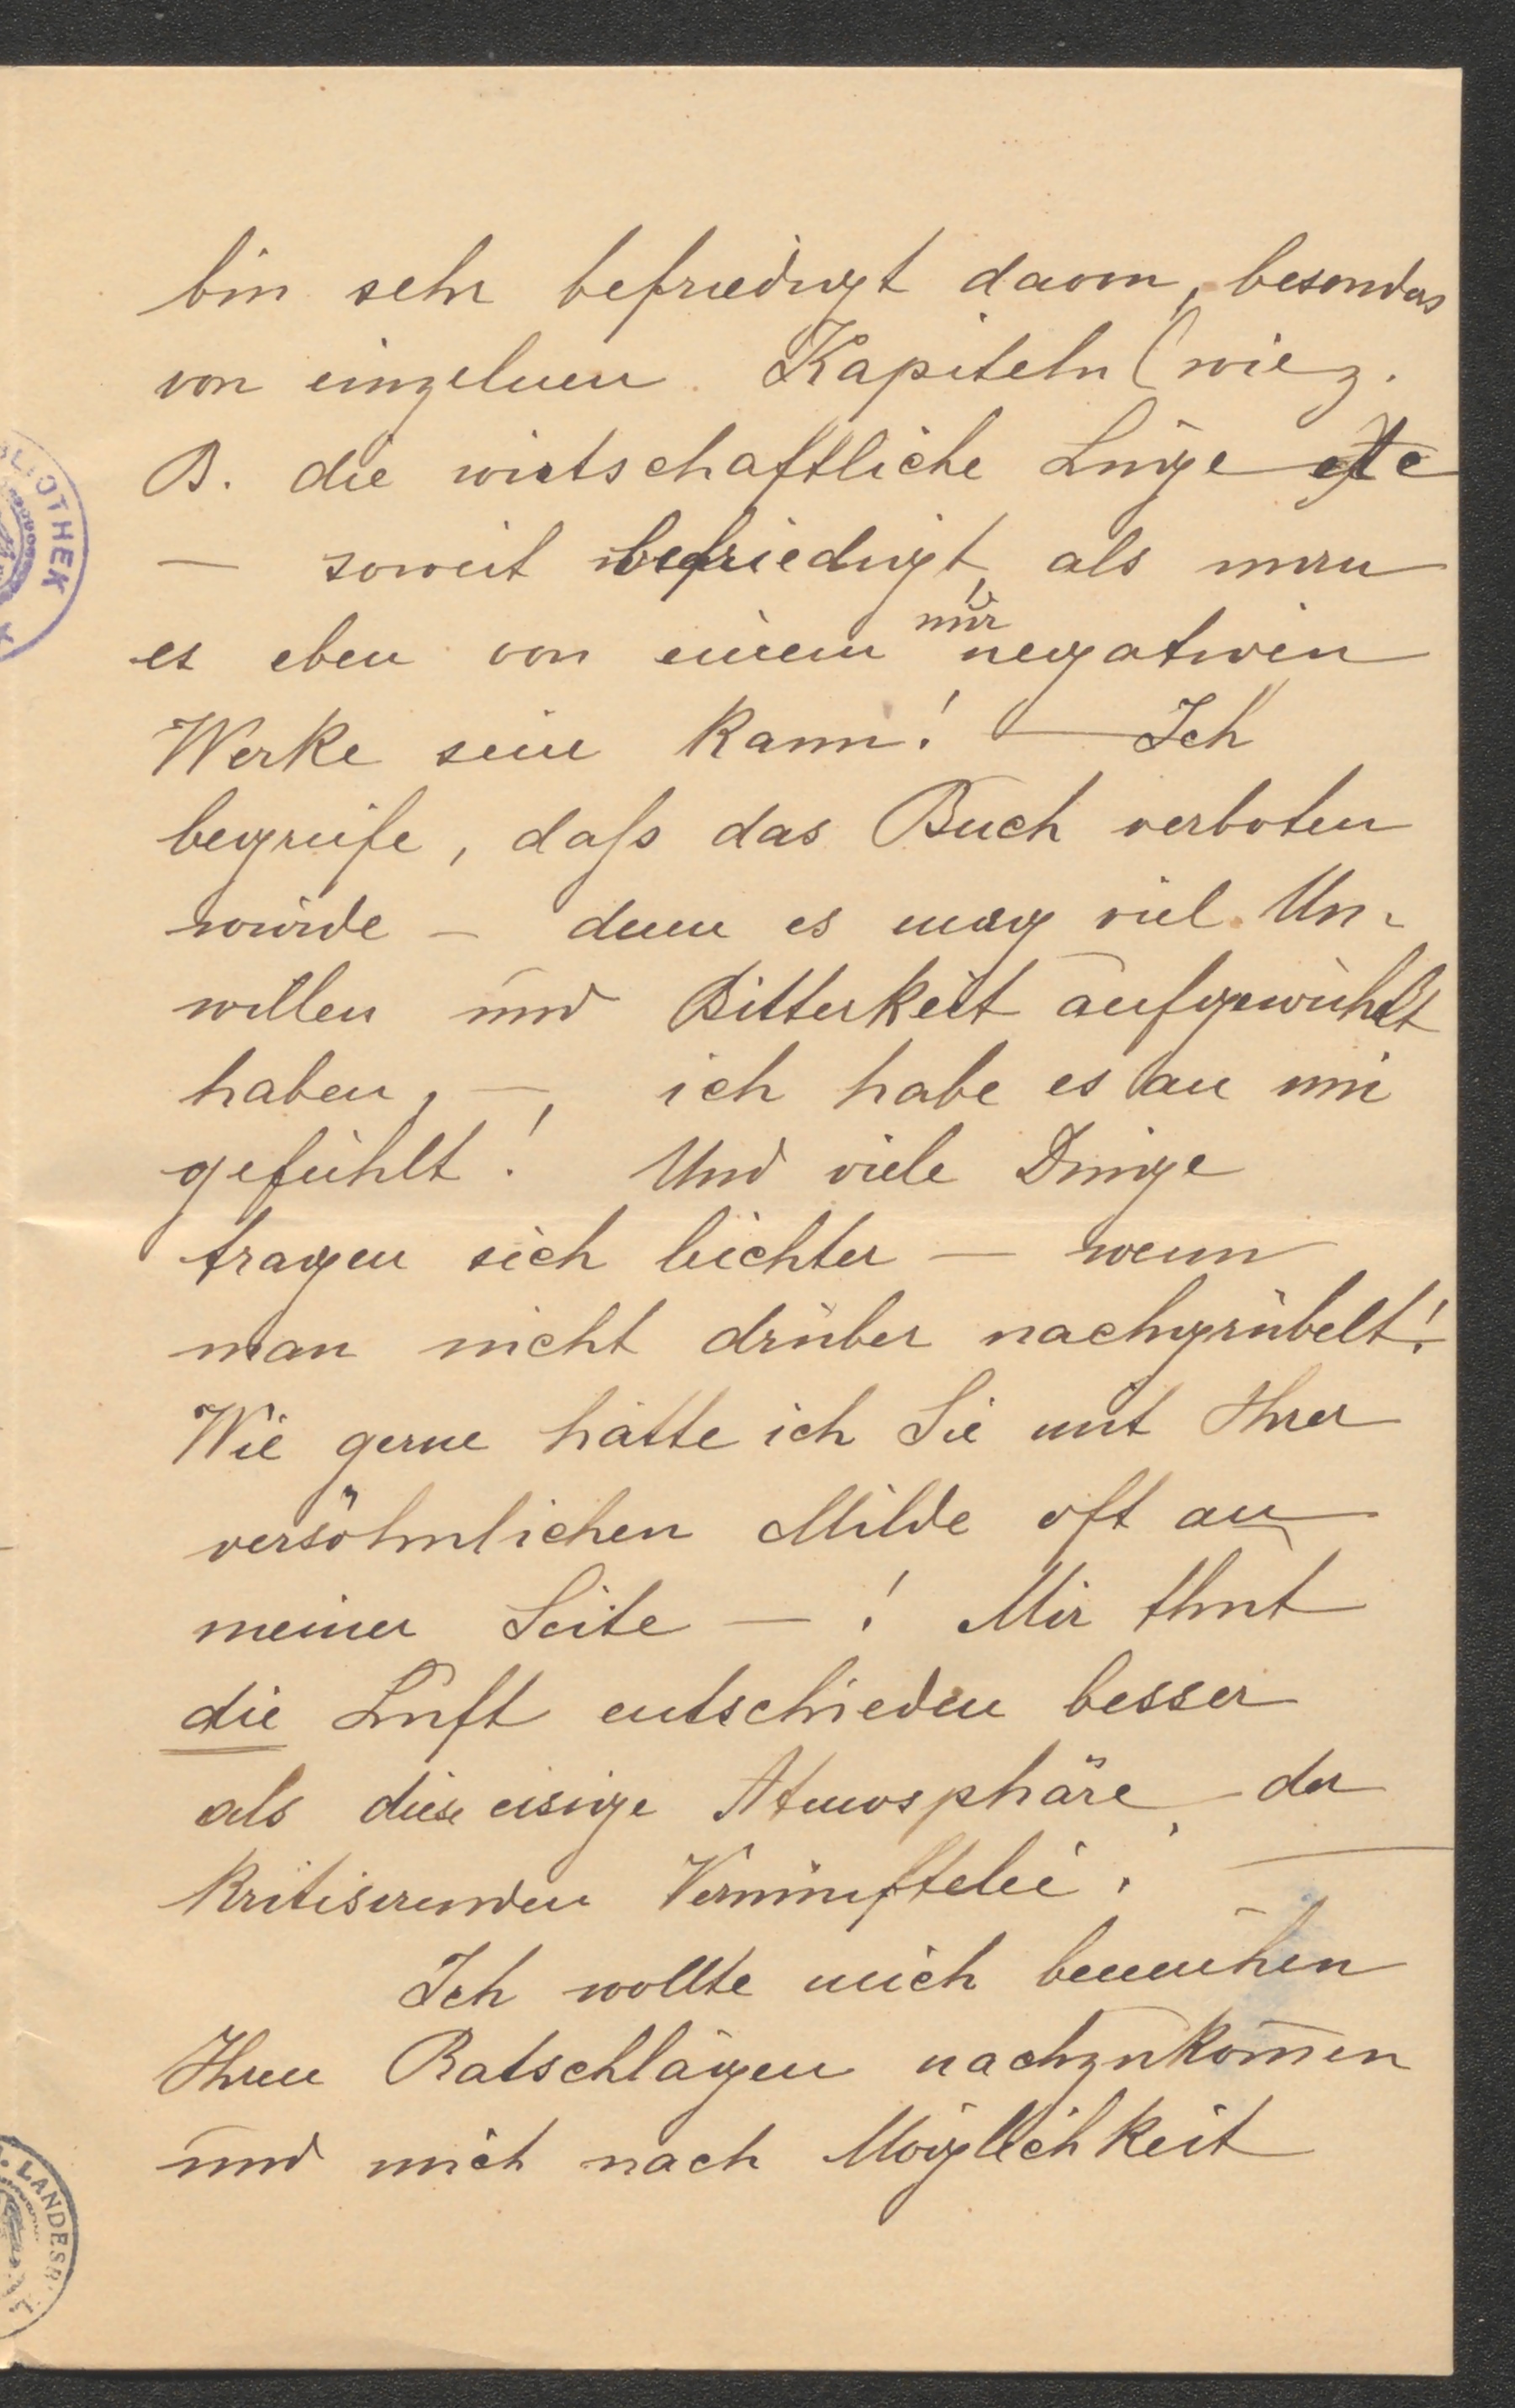 bin sehr befriedigt davon, besonders
von einzelnen Kapiteln (wie z.
B. die wirtschaftliche Lüge etc
— soweit befriedigt, als man
es eben von einem nur negativen
Werke sein kann! — Ich
begreife, daſs das Buch verboten
wurde — denn es mag viel Un-
willen und Bitterkeit aufgewühlt
haben, —, ich habe es an mir
gefühlt! Und viele Dinge
tragen sich leichter — wenn
man nicht drüber nachgrübelt!
Wie gerne hätte ich Sie mit Ihrer
versöhnlichen Milde oft an
meiner Seite — ! Mir thut
die Luft entschieden besser
als diese eisige Atmosphäre der
kritisirenden Vernünftelei! —
Ich wollte mich bemühen
Ihren Ratschlägen nachzukom̄en
und mich nach Möglichkeit
BLIOTHEK
K
LANDESB